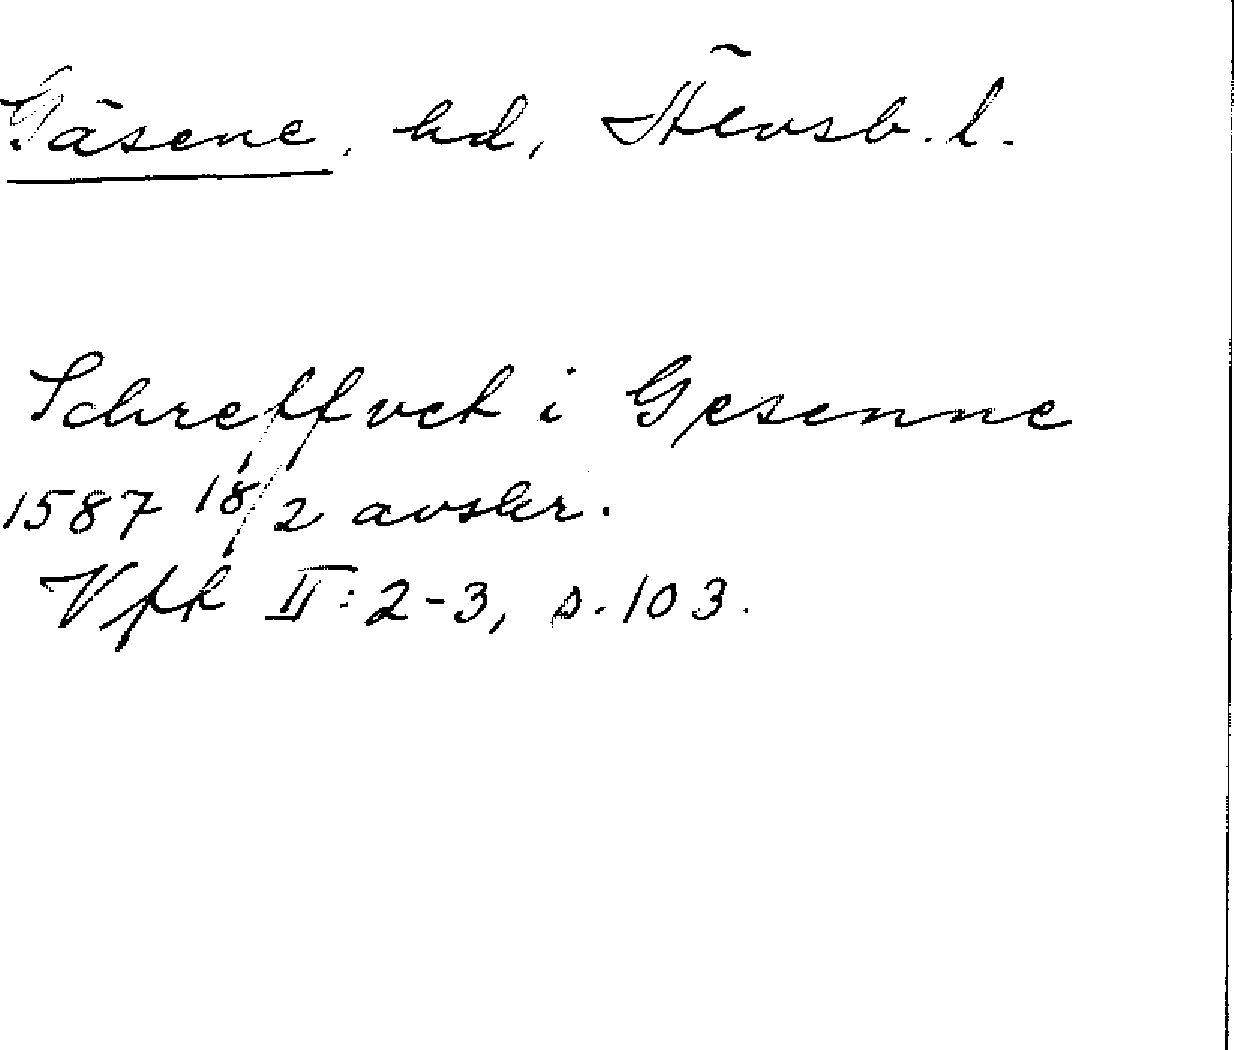 Gäsene, hd, Älvsb. l.
Schreffvet i Gesenne
1587 18/2 avskr.
Vfk II: 2-3, s. 103.